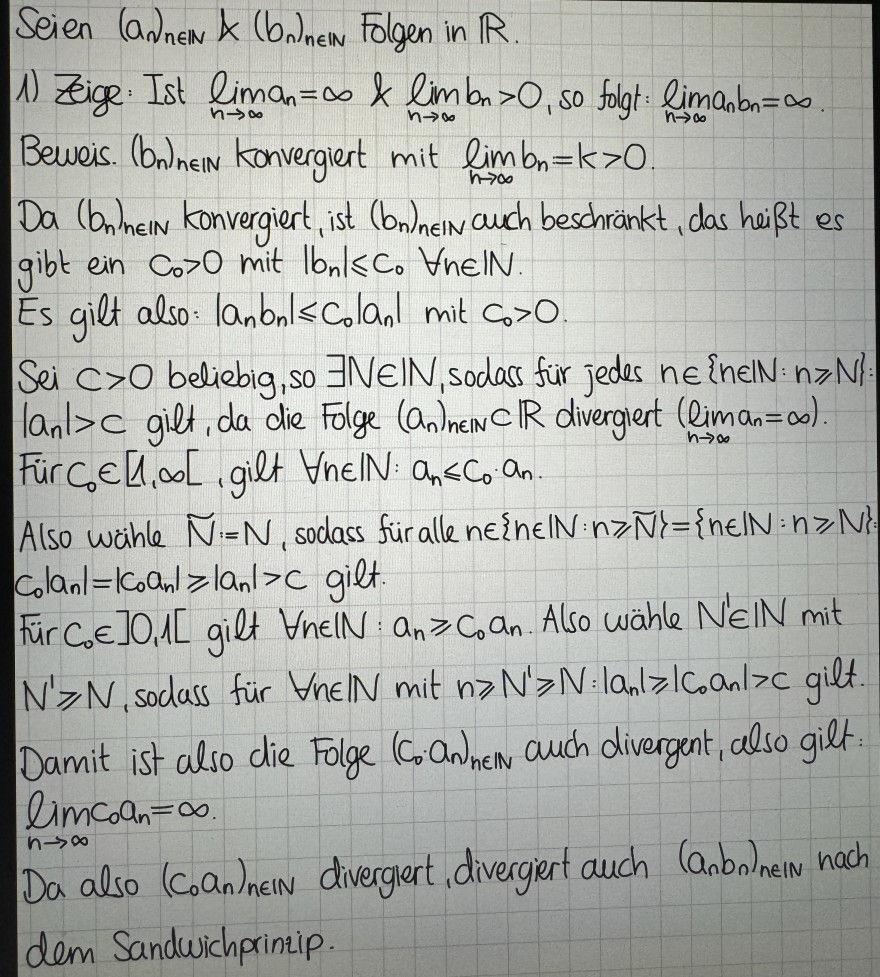 Seien (aₙ)ₙ∈ℕ & (bₙ)ₙ∈ℕ Folgen in ℝ.
1) Zeige: Ist lim_{n→∞} aₙ=∞ & lim_{n→∞} bₙ>0, so folgt: lim_{n→∞} aₙbₙ=∞.
Beweis. (bₙ)ₙ∈ℕ konvergiert mit lim_{n→∞} bₙ=k>0.
Da (bₙ)ₙ∈ℕ konvergiert, ist (bₙ)ₙ∈ℕ auch beschränkt, das heißt es
gibt ein C₀>0 mit |bₙ|≤C₀ ∀n∈ℕ.
Es gilt also: |aₙbₙ|≤C₀|aₙ| mit C₀>0.
Sei C>0 beliebig, so ∃N∈ℕ, sodass für jedes n∈{n∈ℕ: n≥N}:
|aₙ|>C gilt, da die Folge (aₙ)ₙ∈ℕ⊂ℝ divergiert (lim_{n→∞} aₙ=∞).
Für C₀∈[1,∞[, gilt ∀n∈ℕ: aₙ≤C₀·aₙ.
Also wähle Ñ:=N, sodass für alle n∈{n∈ℕ: n≥Ñ}={n∈ℕ: n≥N}:
C₀|aₙ|=|C₀aₙ|≥|aₙ|>C gilt.
Für C₀∈]0,1[ gilt ∀n∈ℕ: aₙ≥C₀aₙ. Also wähle N'∈ℕ mit
N'≥N, sodass für ∀n∈ℕ mit n≥N'≥N: |aₙ|≥|C₀aₙ|>C gilt.
Damit ist also die Folge (C₀·aₙ)ₙ∈ℕ auch divergent, also gilt:
lim_{n→∞} C₀aₙ=∞.
Da also (C₀aₙ)ₙ∈ℕ divergiert, divergiert auch (aₙbₙ)ₙ∈ℕ nach
dem Sandwichprinzip.